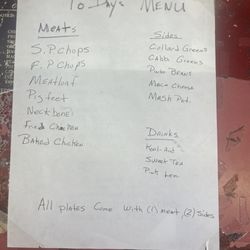 To Day's MENU
Meats
S.P Chops
F.P Chops
Meatloaf
Pig feet
Neckbones
Fried Chicken
Baked Chicken
Sides
Collard Greens
Cabb Greens
Pinto Beans
Mac n Cheese
Mash Pot.
Drinks
Kool-Aid
Sweet Tea
All plates Come with (1) meat, (2) sides